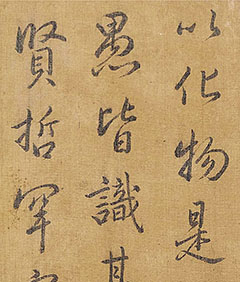 以化物是
愚皆識其
賢哲罕窮